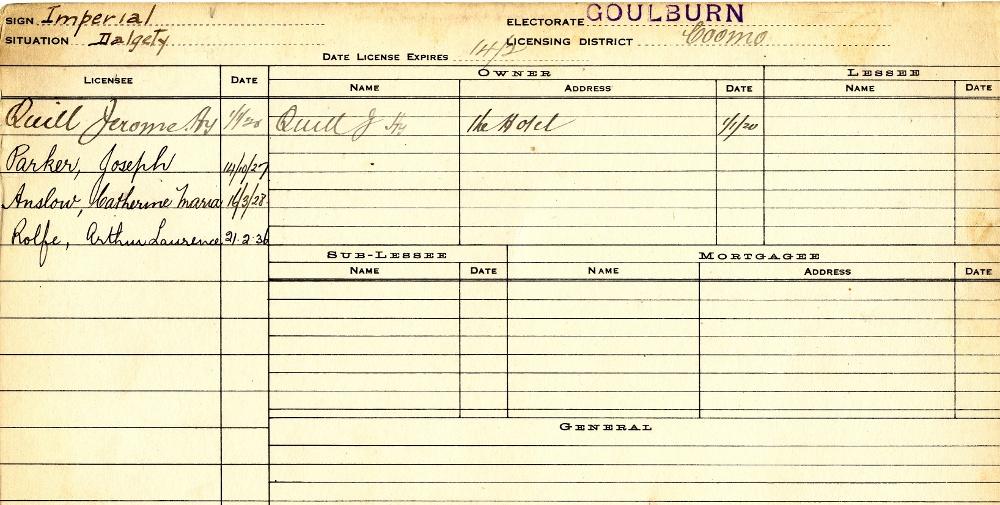 SIGN Imperial ELECTORATE GOULBURN
SITUATION Dalgety LICENSING DISTRICT Coomo
DATE LICENSE EXPIRES
LICENSEE DATE OWNER LESSEE
NAME ADDRESS DATE NAME DATE
Quill Jerome Hy 1/1/20 Quill J Hy the Hotel 1/1/20
Parker, Joseph 14/10/27
Anslow, Catherine Maria 16/3/28
Rolfe, Arthur Laurence 21.2.36
SUB-LESSEE MORTGAGEE
NAME DATE NAME ADDRESS DATE
GENERAL